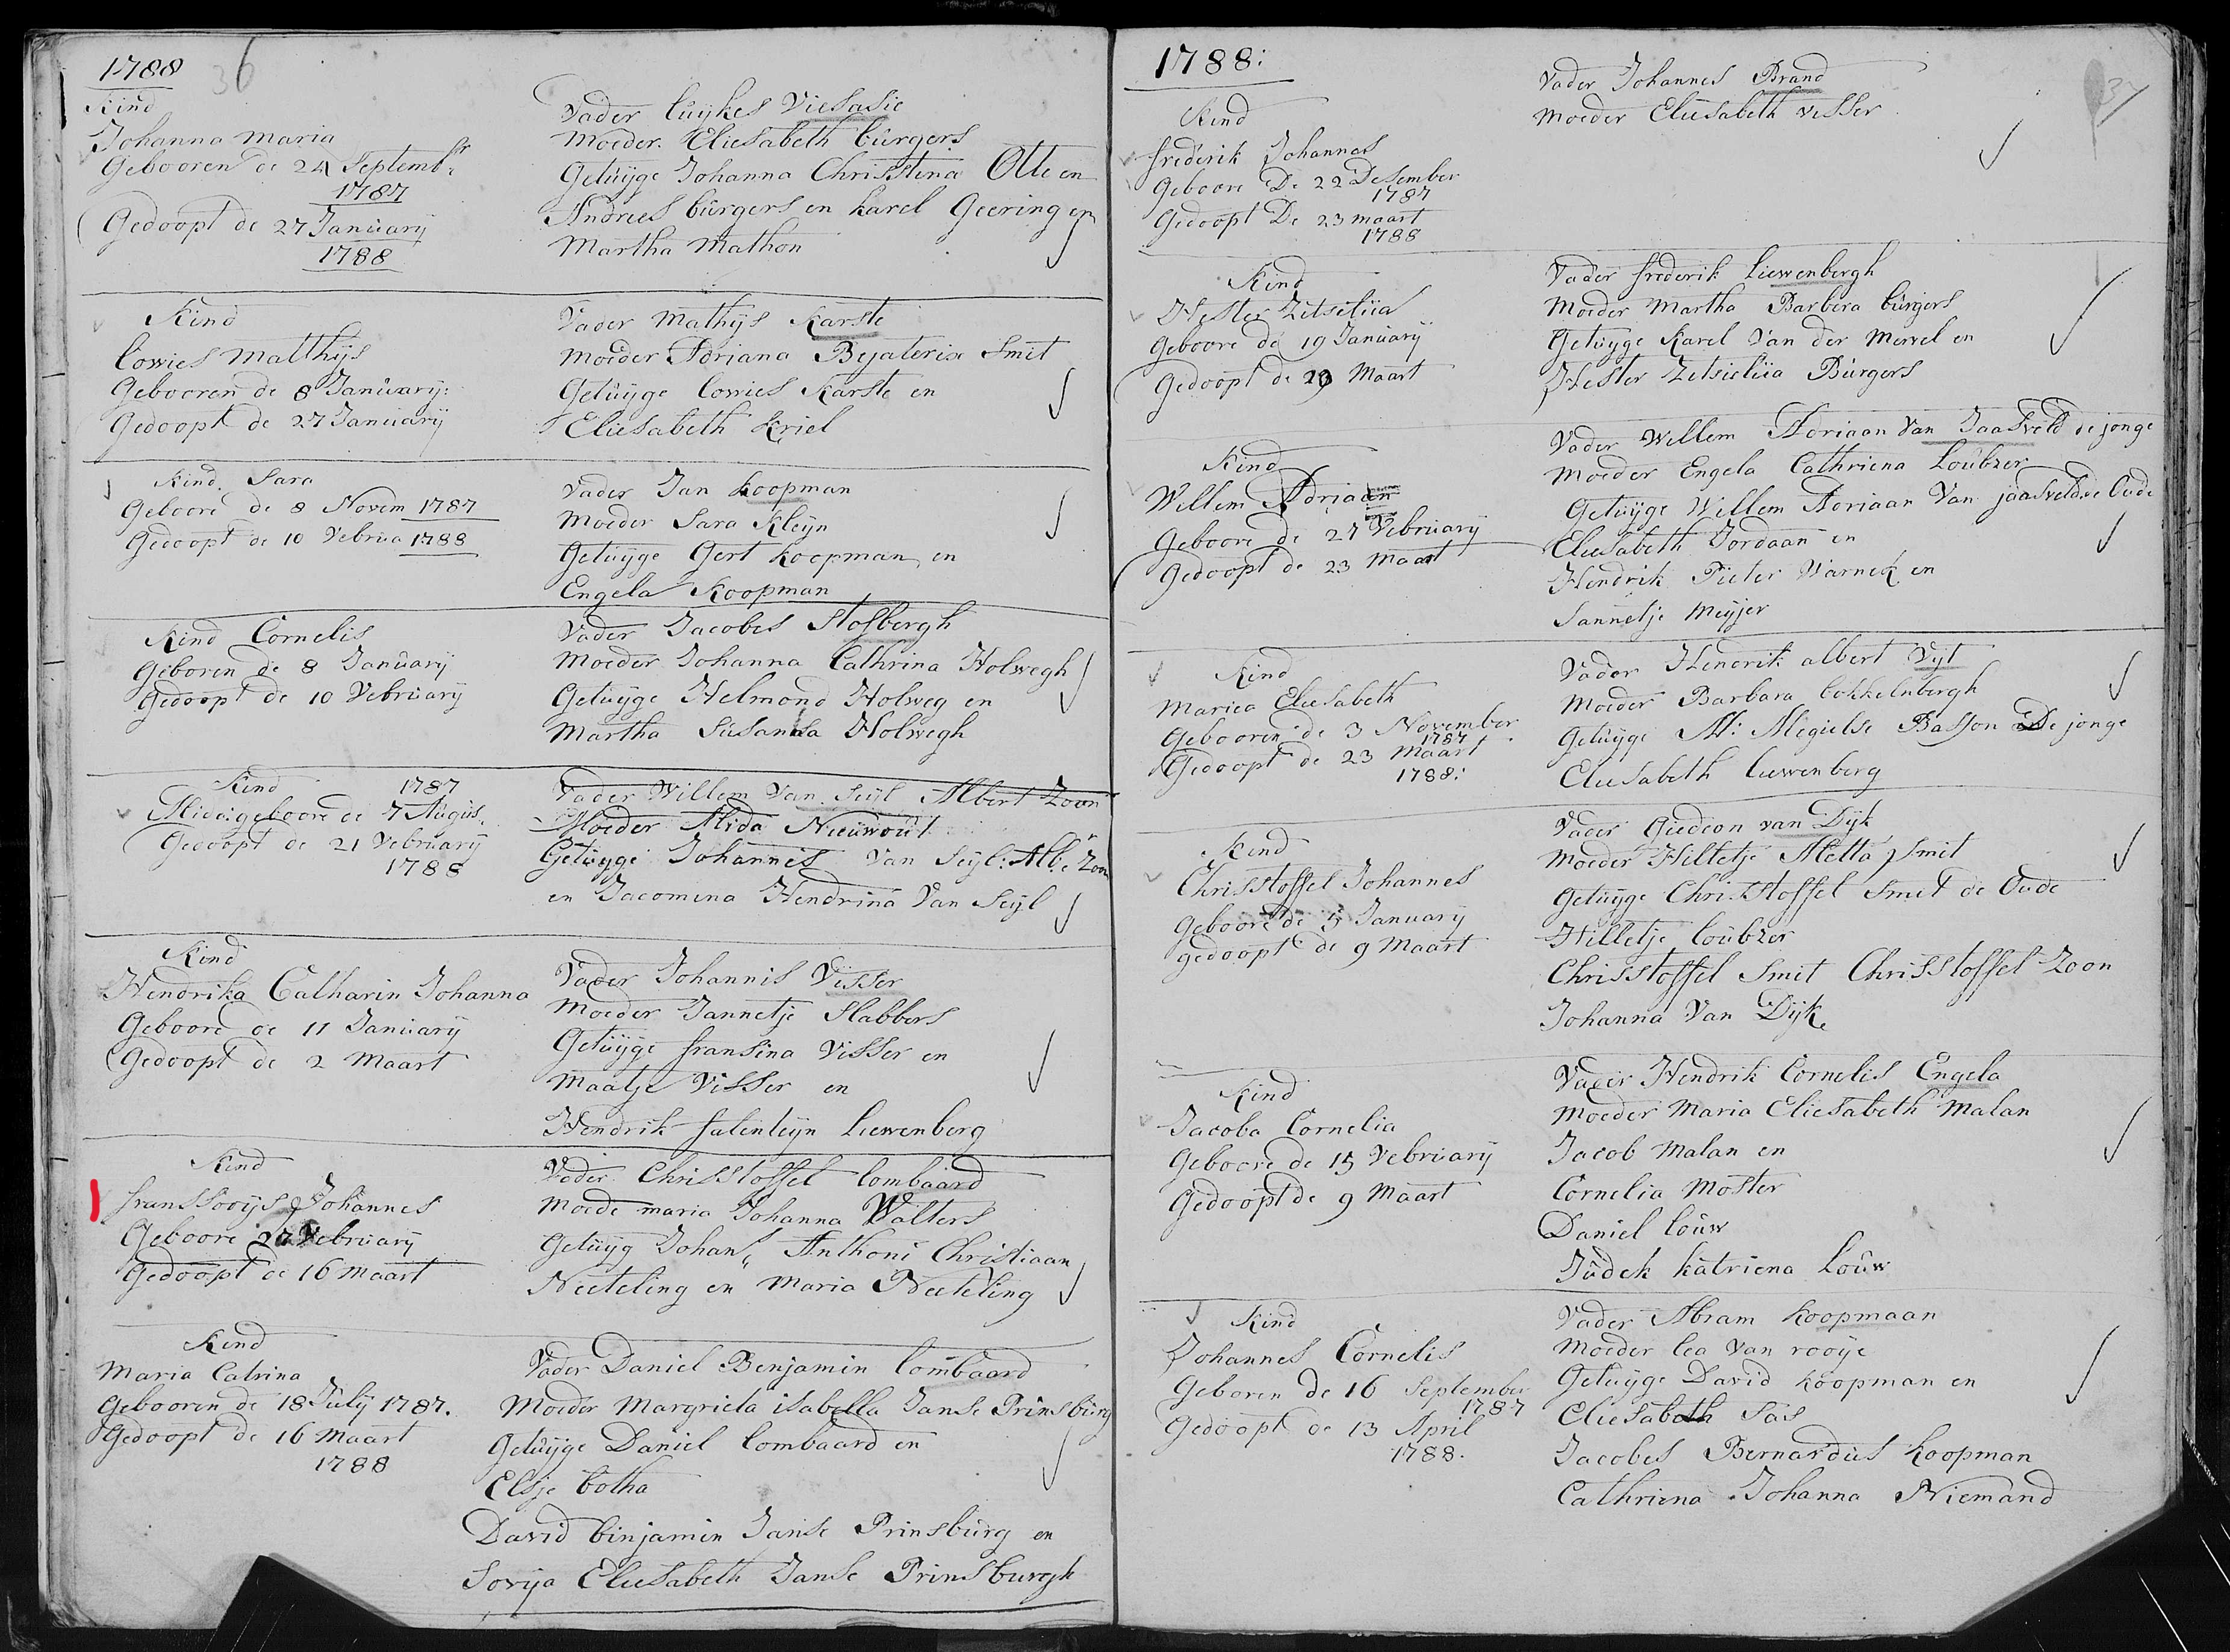 1788
36
Kind
Johanna Maria
Gebooren de 24 Septembr
1787
Gedoopt de 27 January
1788
Vader Cuijkes Viesasie
Moeder Eliesabeth Burgers
Getuijge Johanna Christina Otte en
Andries burgers en Karel Geering en
Martha Mathon
Kind
Cowies Matthijs
Gebooren de 8 January:
Gedoopt de 27 January
Vader Mathijs Karste
Moeder Adriana Bejaterix Smit
Getuijge Cowies Karste en
Eliesabeth Kriel
Kind Sara
Geboore de 8 Novem 1787
Gedoopt de 10 Vebrua 1788
Vader Jan Koopman
Moeder Sara Kleyn
Getuijge Gert Koopman en
Engela Koopman
Kind Cornelis
Geboren de 8 January
Gedoopt de 10 Vebruarij
Vader Jacobes Stofbergh
Moeder Johanna Cathrina Holwegh
Getuijge Helmond Holweg en
Martha Susanna Holwegh
Kind 1787
geboore de 7 Augus.
Gedoopt de 21 Vebruarij
1788
Vader Willem Van Seijl Albert Zoon
Moeder Alida Nieuwout
Getuijge Johannis Van Seijl: Alb: Zoon
en Jacomina Hendrina Van Seijl
Kind
Hendrika Catharin Johanna
Geboore de 11 January
Gedoopt de 2 Maart
Vader Johannis Visser
Moeder Jannetje Slabbers
Getuijge fransina Visser en
Maatje Visser en
Hendrik falenteijn Liewenberg
Kind
franssooijs Johannes
Geboore 27 Vebruarij
Gedoopt de 16 Maart
Vader Christoffel Combaard
Moede maria Johanna Walters
Getuijg Johans Anthoni Christiaan
Neeteling en Maria Neeteling
Kind
Maria Catrina
Gebooren de 18 July 1787.
Gedoopt de 16 Maart
1788
Vader Daniel Benjamin Combaard
Moeder Margrieta isabella Janse Prinsburg
Getuijge Daniel Combaard en
Elsje Cotha
David binjamin Janse Prinsburg en
Sovija Eliesabeth Janse Prinsburgh
1788:
37
Kind
frederik Johannes
Geboore De 22 Desember
1787
Gedoopt De 23 maart
1788
Vader Johannes Brand
Moeder Eliesabeth visser
Kind
Hester Zitselia
Geboore de 19 January
Gedoopt de 29 Maart
Vader frederik Liewenbergh
Moeder Martha Barbera burgers
Getuijge Karel Van der Merwel en
Hester Zetsielia Burgers
Kind
Willem Adriaan
Geboore de 27 Vebruarij
Gedoopt de 23 Maart
Vader Willem Adriaan Van Jaasveld de jonge
Moeder Engela Cathriena Loubzer
Getuijge Willem Adriaan Van jaasveld de Oude
Eliesabeth Jordaan en
Hendrik Pieter Warnek en
Sannetje Meyjer
Kind
Mariea Eliesabeth
Gebooren de 3 November
1787
Gedoopt de 23 Maart
1788:
Vader Hendrik albert Vijt
Moeder Barbara Cokkelnbergh
Getuijge M: Megielse Basson De jonge
Eliesabeth Liewenberg
Kind
Chrisstoffel Johannes
Geboore de 5 January
gedoopt de 9 Maart
Vader Giedeon van Dijk
Moeder Hilletje Aletta Smit
Getuijge Chrisstoffel Smit de Oude
Hilletje Coubzer
Chrisstoffel Smit Chrisstoffel Zoon
Johanna Van Dijk
Kind
Jacoba Cornelia
Geboore de 15 Vebruarij
Gedoopt de 9 Maart
Vader Hendrik Cornelis Engela
Moeder Maria Eliesabeth Malan
Jacob Malan en
Cornelia Moster
Daniel Couw
Judek Katriena Louw
Kind
Johannes Cornelis
Geboren De 16 September
1787
Gedoopt de 13 April
1788.
Vader Abram Koopmaan
Moeder Cea Van rooije
Getuijge David Koopman en
Eliesabeth Sas
Jacobes Bernardus Koopman
Cathriena Johanna Niemand